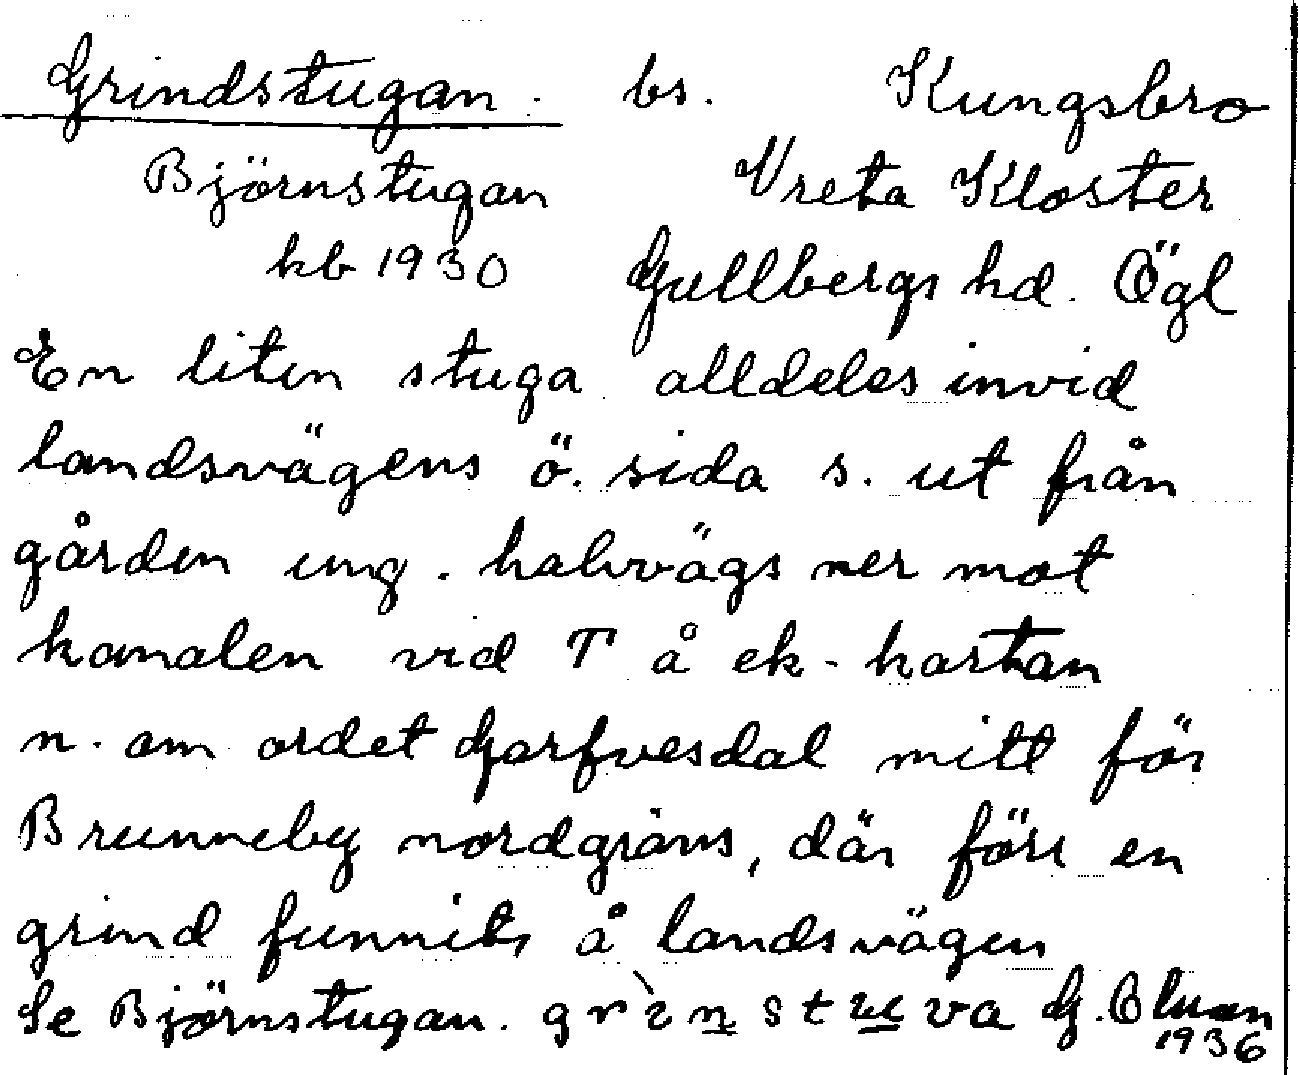 Grindstugan. bs. Kungsbro
Björnstugan Vreta Kloster
kb 1930 Gullbergs hd. Ögl
En liten stuga alldeles invid
landsvägens ö. sida s. ut från
gården ung. halvvägs ner mot
kanalen vid T å ek. kartan
n. om ordet Garfvesdal mitt för
Brunneby nordgräns, där förr en
grind funnits å landsvägen
Se Björnstugan. grìnstuva G.
1936